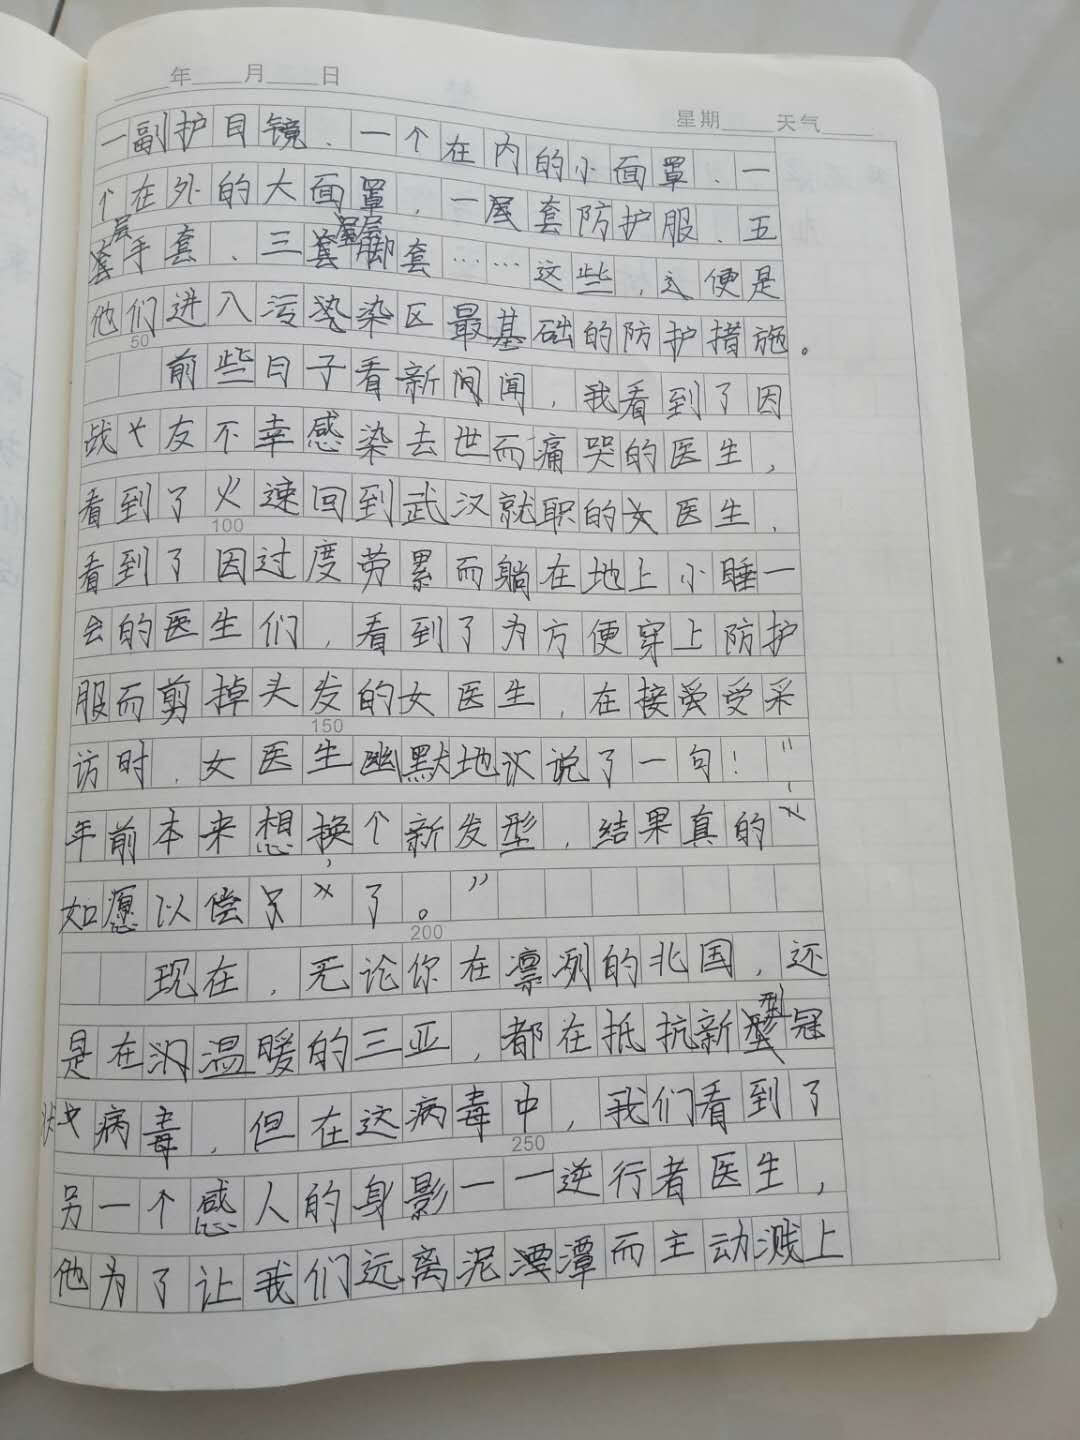 年 月 日
星期 天气
一副护目镜、一个在内的小面罩、一
个在外的大面罩，一层套防护服、五
层手套、三层脚套……这些，这便是
他们进入污染区最基础的防护措施。
50
前些日子看新闻，我看到了因
战友不幸感染去世而痛哭的医生，
看到了火速回到武汉就职的女医生，
100
看到了因过度劳累而躺在地上小睡一
会的医生们，看到了为方便穿上防护
服而剪掉头发的女医生，在接受采
150
访时，女医生幽默地说了一句！“
年前本来想换个新发型，结果真的
如愿以偿了。”
200
现在，无论你在凛冽的北国，还
是在温暖的三亚，都在抵抗新型冠
状病毒，但在这病毒中，我们看到了
250
另一个感人的身影——逆行者医生，
他为了让我们远离泥潭而主动溅上